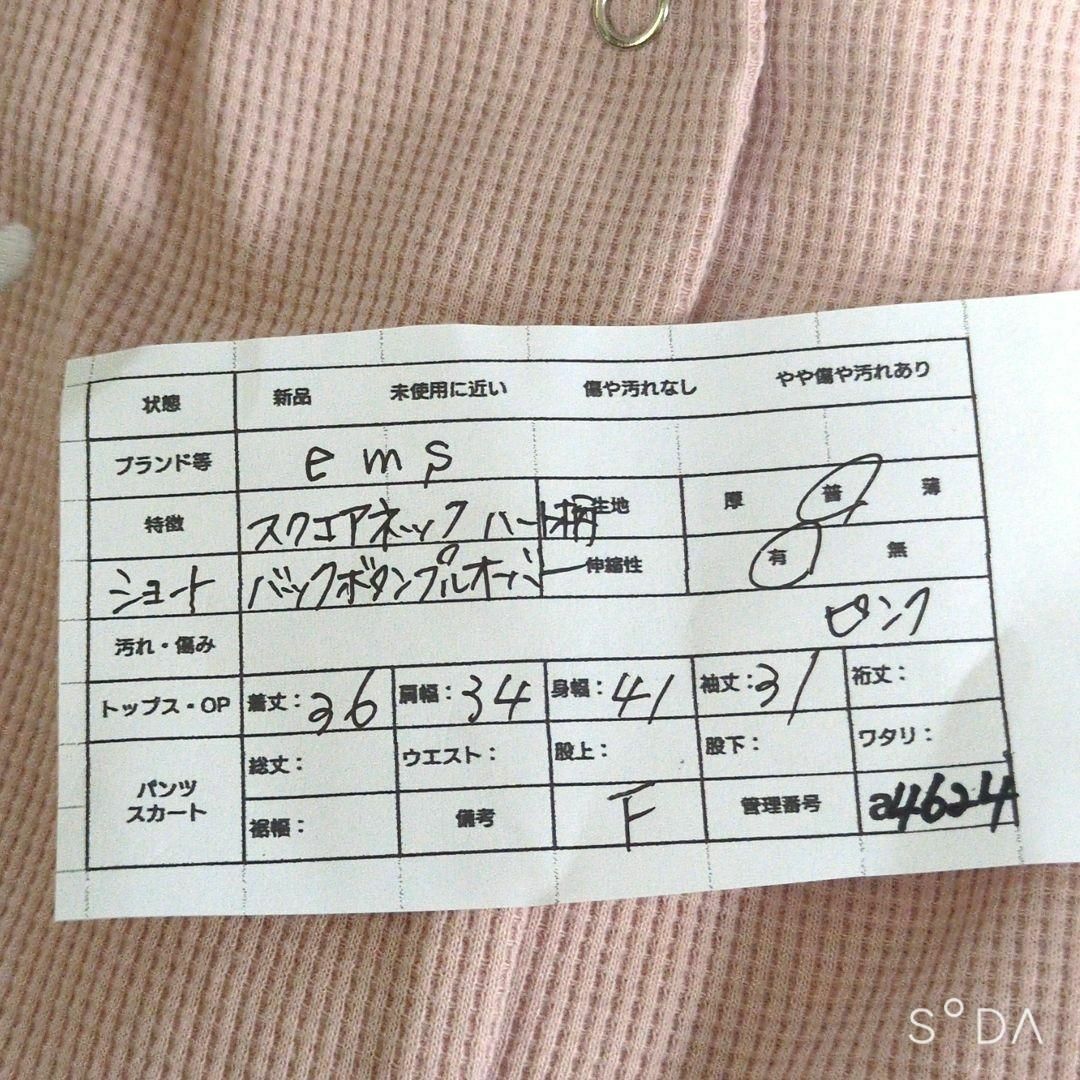 状態 新品 未使用に近い 傷や汚れなし やや傷や汚れあり
ブランド等 ems
特徴 スクエアネック ハート柄 生地 厚 普 薄
ショート バックボタンプルオーバー 伸縮性 有 無
汚れ・傷み ピンク
トップス・OP 着丈:36 肩幅:34 身幅:41 袖丈:31 裄丈:
パンツ
スカート
総丈: ウエスト: 股上: 股下: ワタリ:
裾幅: 備考 F 管理番号 a4624
SODA